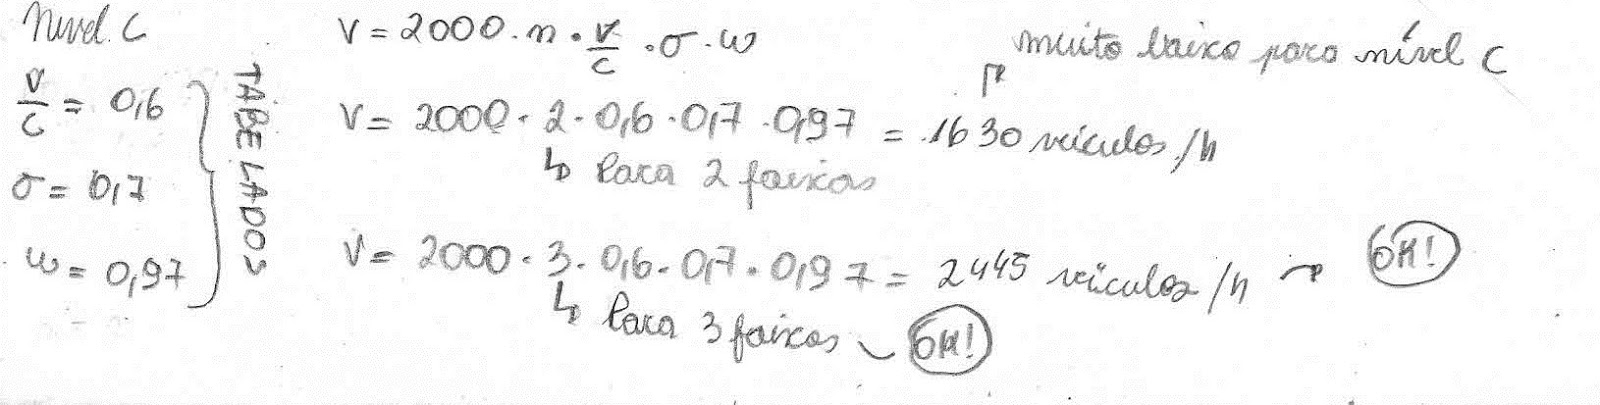 Nível C
v/c = 0,6
σ = 0,7
w = 0,97
TABELADOS
V = 2000 · n · v/c · σ · w
muito baixo para nível C
V = 2000 · 2 · 0,6 · 0,7 · 0,97 = 1630 veículos/h
↳ Para 2 faixas
V = 2000 · 3 · 0,6 · 0,7 · 0,97 = 2445 veículos/h → OK!
↳ Para 3 faixas ~ OK!